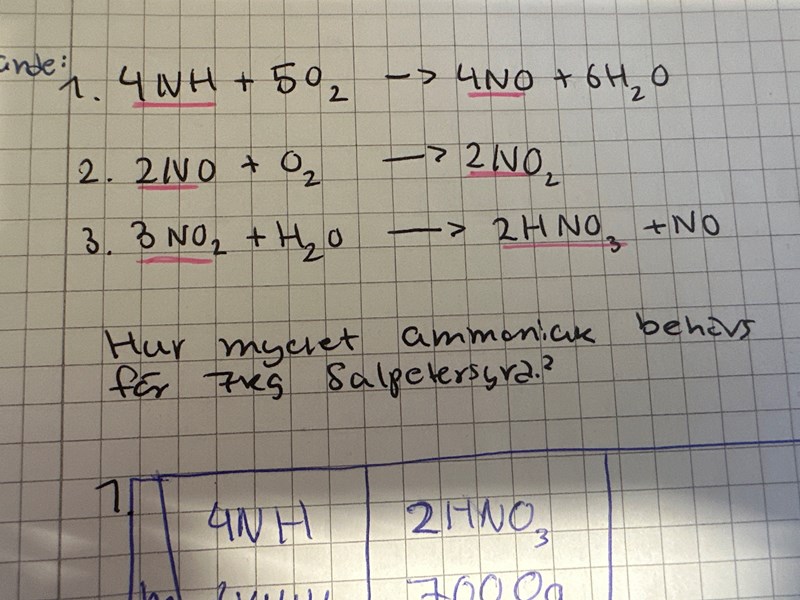 ande:
1. 4NH + 5O₂ -> 4NO + 6H₂O
2. 2NO + O₂ -> 2NO₂
3. 3NO₂ + H₂O -> 2HNO₃ + NO
Hur mycket ammoniak behövs
för 7kg Salpetersyra.?
1.
4NH 2HNO₃
7000g